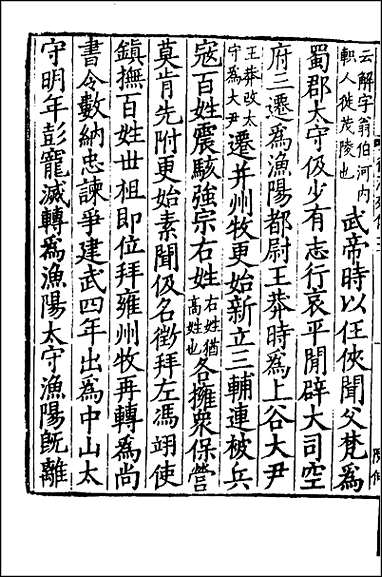 云解字翁伯河内軹人徙茂陵也武帝時以任俠聞父梵爲
蜀郡太守伋少有志行哀平閒辟大司空
府三遷爲漁陽都尉王莽時爲上谷大尹
王莽改太守爲大尹遷并州牧更始新立三輔連被兵
寇百姓震駭強宗右姓右姓猶高姓也各擁衆保營
莫肯先附更始素聞伋名徵拜左馮翊使
鎮撫百姓世祖即位拜雍州牧再轉爲尚
書令數納忠諫爭建武四年出爲中山太
守明年彭寵滅轉爲漁陽太守漁陽旣離